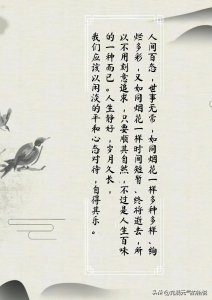 人间百态，世事无常，如同烟花一样多种多样、绚
烂多彩，又如同烟花一样时间短暂、终将逝去，所
以不用刻意追求，只要顺其自然，不过是人生百味
的一种而已。人生静好，岁月久长，
我们应该以闲淡的平和心态对待，自得其乐。